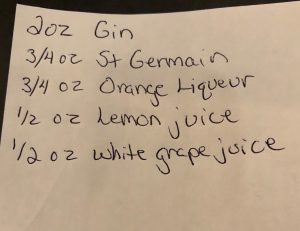 2oz Gin
3/4 oz St Germain
3/4 oz Orange Liqueur
1/2 oz Lemon juice
1/2 oz white grape juice